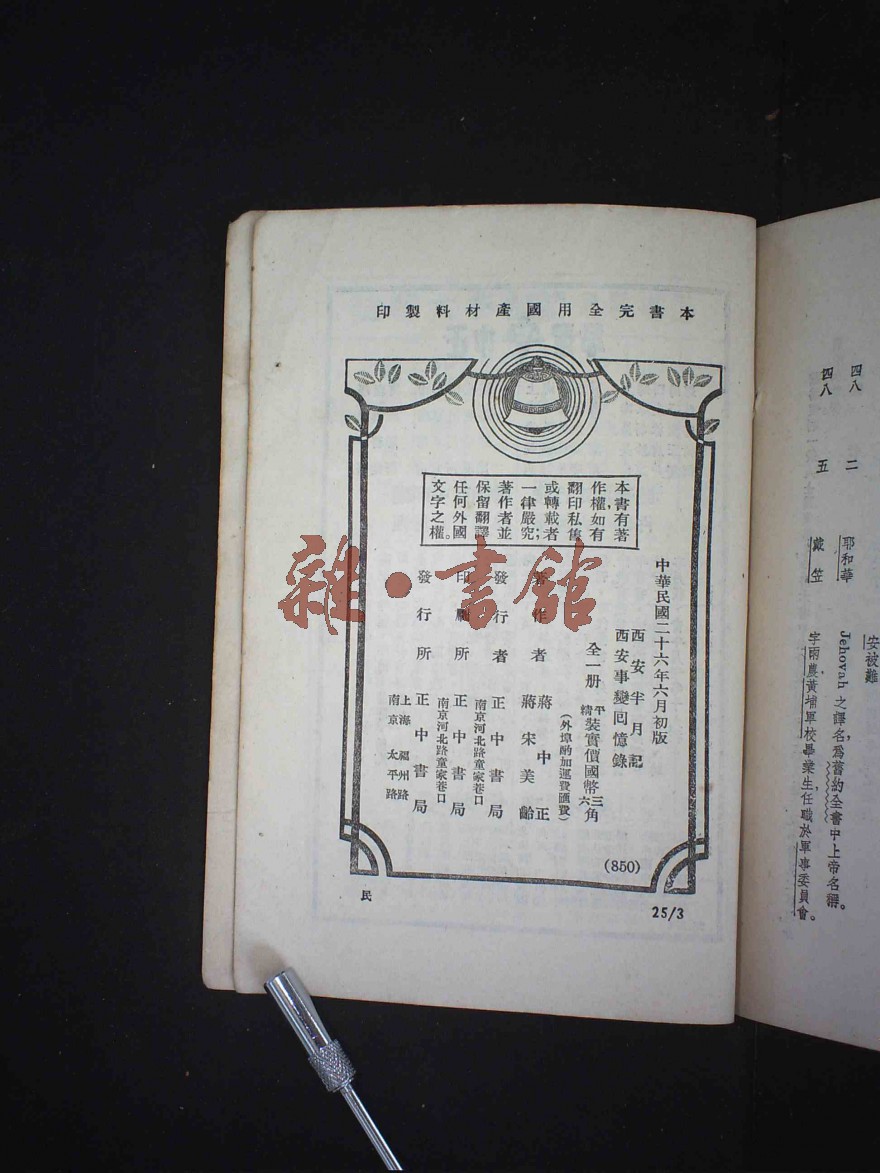 本書完全用國產材料製印
本書有著
作權,如有
翻印私售
或轉載者
一律嚴究;
著作者並
保留翻譯
任何外國
文字之權。
中華民國二十六年六月初版
西安半月記
西安事變回憶錄
全一册 平精裝實價國幣三六角
(外埠酌加運費匯費)
著作者 蔣中正
蔣宋美齡
發行者 正中書局
南京河北路童家巷口
印刷所 正中書局
南京河北路童家巷口
發行所 正中書局
上海 福州路
南京 太平路
(850)
民
25/3
雜·書館
四八 二 耶和華 Jehovah 之譯名,爲舊約全書中上帝名稱。
四八 五 戴笠 字雨農,黃埔軍校畢業生,任職於軍事委員會。
安被難